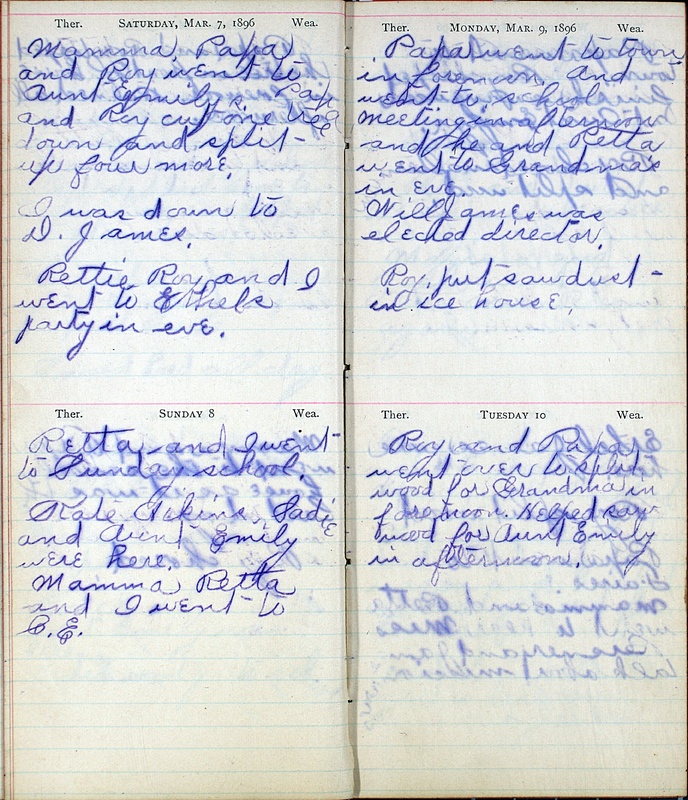 Ther. SATURDAY, MAR. 7, 1896 Wea.
Mamma, Papa
and Roy went to
Aunt Emily's. Papa
and Roy cut one tree
down and split
up four more.
I was down to
D. James.
Rettie Roy and I
went to Ethels
party in eve.
Ther. SUNDAY 8 Wea.
Retta and I went
to Sunday school.
Kate Akins, Sadie
and Aunt Emily
were here.
Mamma Retta
and I went to
C.E.
Ther. MONDAY, MAR. 9, 1896 Wea.
Papa went to town
in forenoon. And
went to school
meeting in afternoon
and he and Retta
went to Grandma's
in eve.
Will James was
elected director.
Roy put sawdust
in ice house.
Ther. TUESDAY 10 Wea.
Roy and Papa
went over to split
wood for Grandma in
forenoon. Helped saw
wood for Aunt Emily
in afternoon.